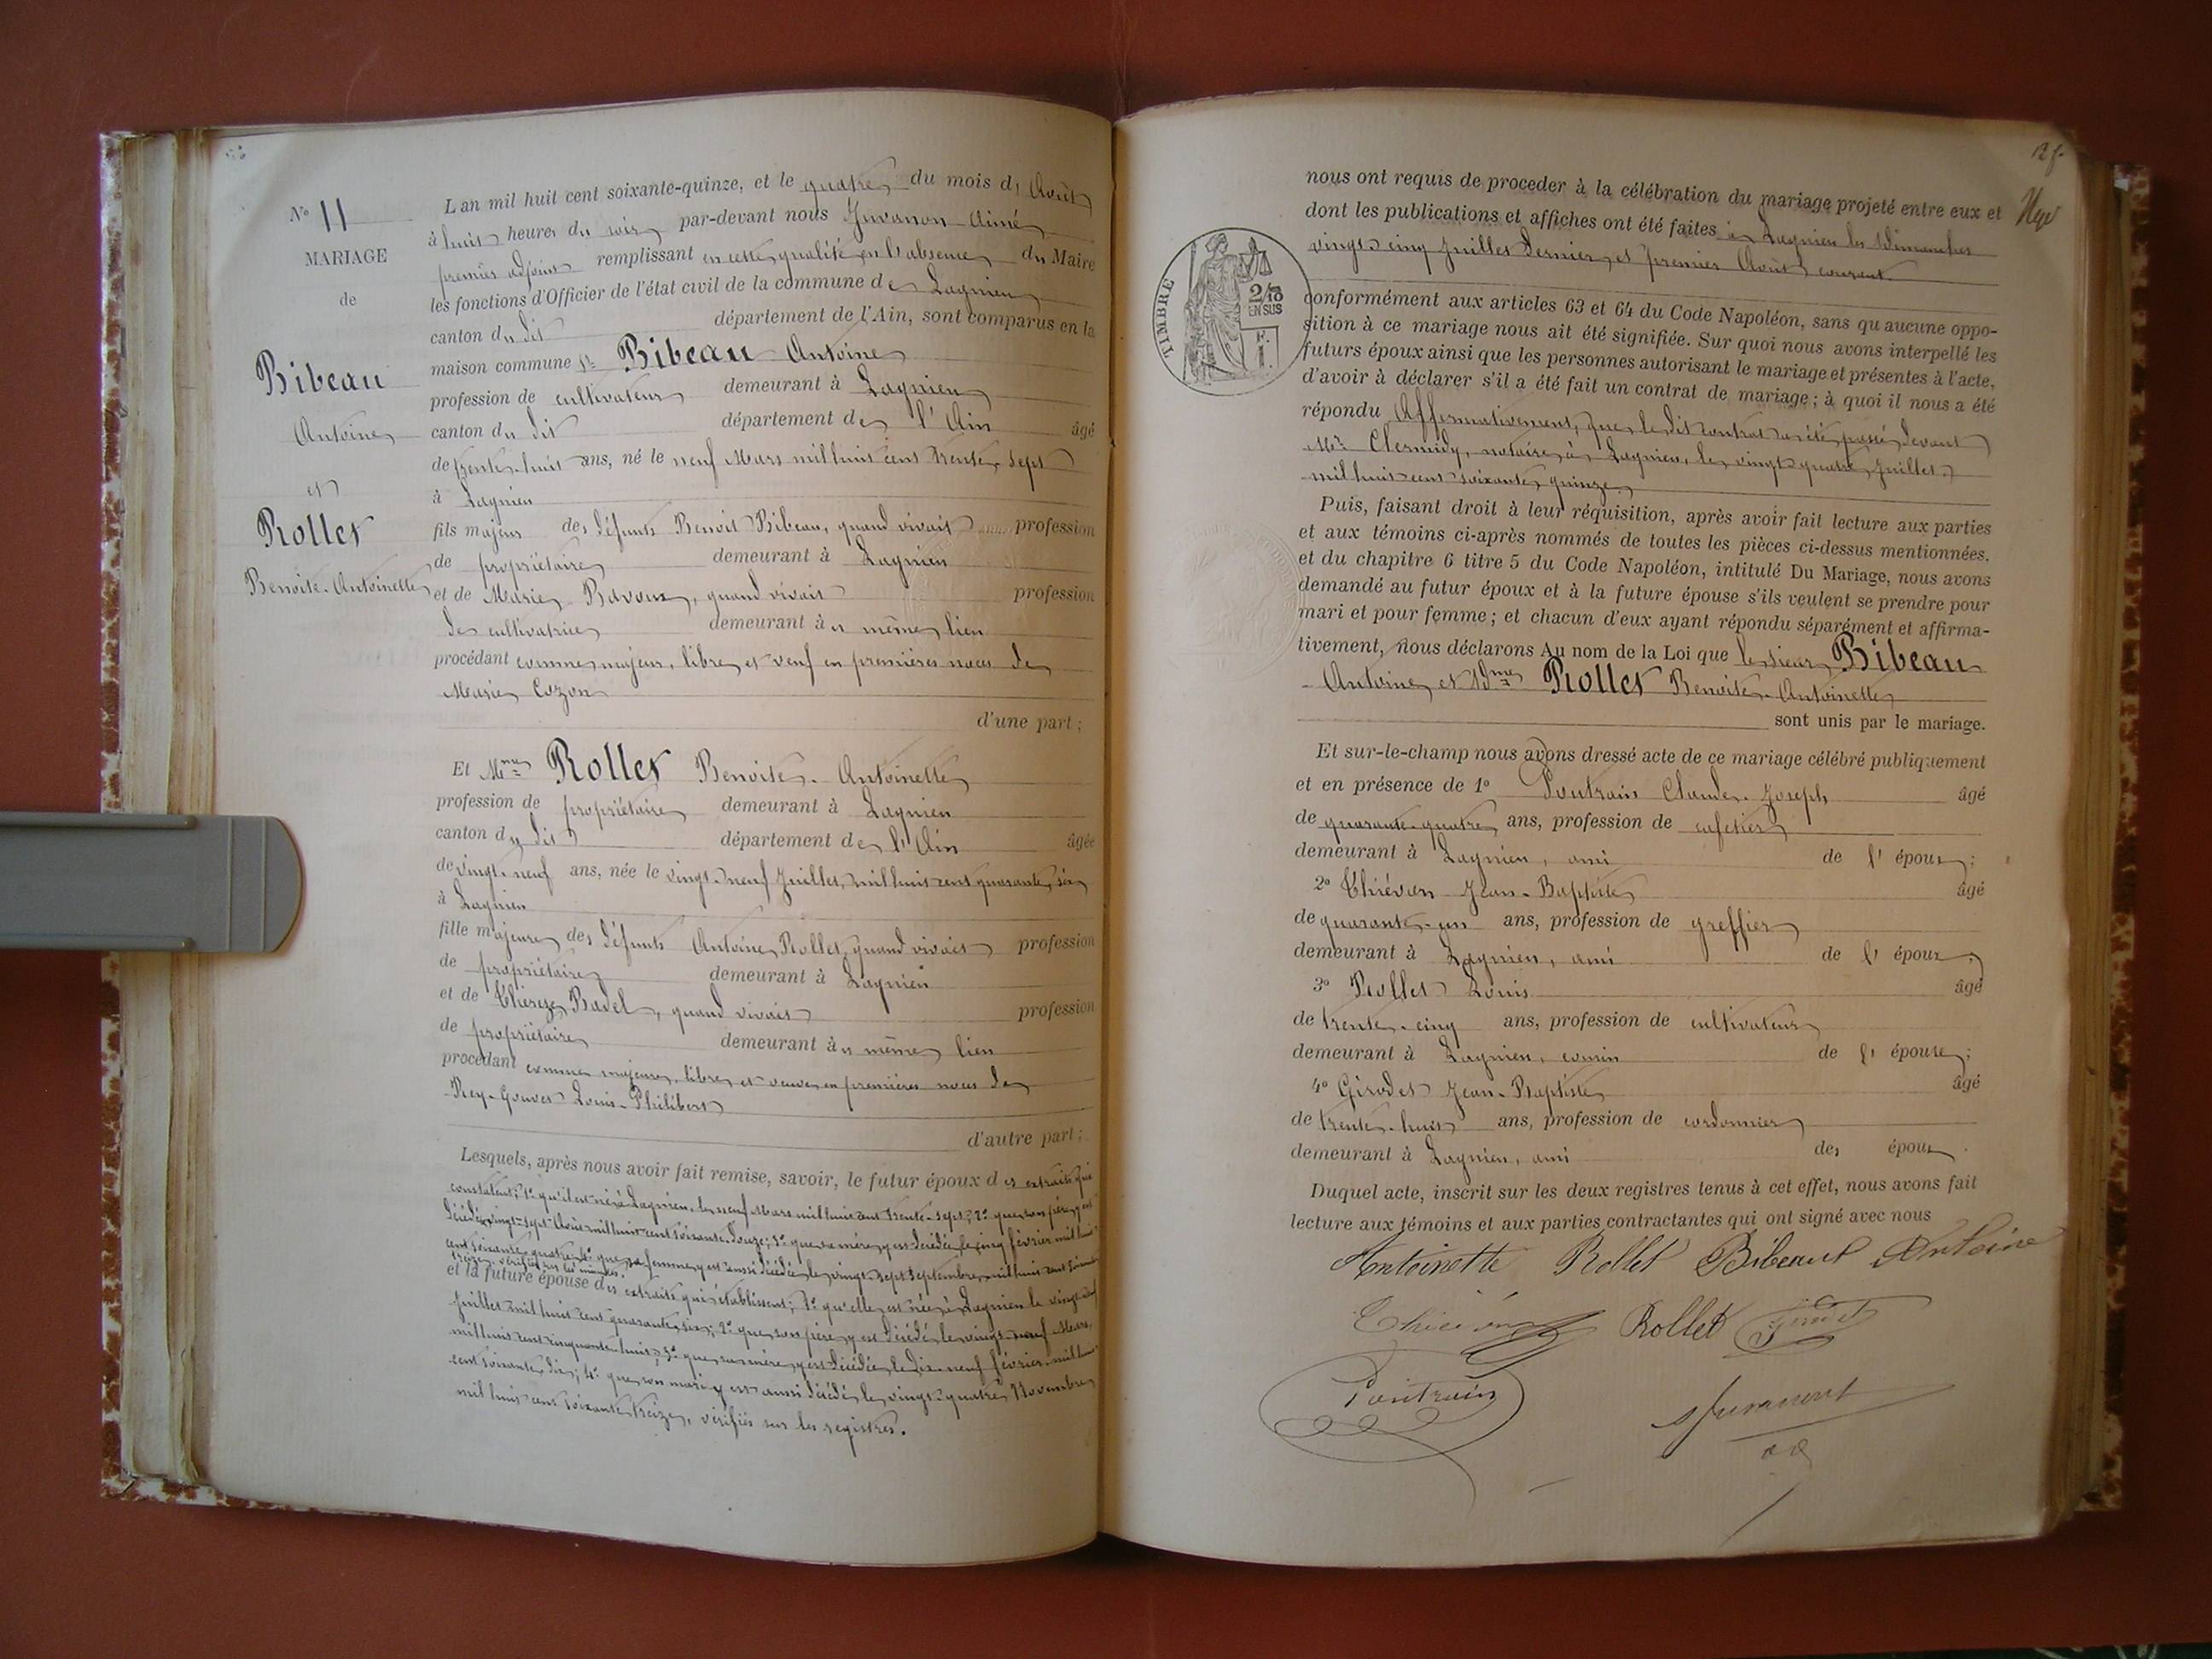 N° 11
MARIAGE
de
Bibeau
Antoine
et
Rollet
Benoite-Antoinette
L'an mil huit cent soixante-quinze, et le quatre du mois d' Août
à huit heures du soir par-devant nous Juvanon Aimé
premier adjoint remplissant en cette qualité en l'absence du Maire
les fonctions d'Officier de l'état civil de la commune de Lagnieu
canton du dit département de l'Ain, sont comparus en la
maison commune Sr Bibeau Antoine
profession de cultivateur demeurant à Lagnieu
canton du dit département de l'Ain âgé
de trente-huit ans, né le neuf Mars mil huit cent trente-sept
à Lagnieu
fils majeur des défunts Benoit Bibeau, quand vivait profession
de propriétaire demeurant à Lagnieu
et de Marie Bavoux, quand vivait profession
de cultivatrice demeurant au même lieu
procédant comme majeur, libre et veuf en premières noces de
Marie Cozon
d'une part ;
Et Mme Rollet Benoite-Antoinette
profession de propriétaire demeurant à Lagnieu
canton du dit département de l'Ain âgée
de vingt-neuf ans, née le vingt-neuf Juillet, mil huit cent quarante-six
à Lagnieu
fille majeure des défunts Antoine Rollet, quand vivait profession
de propriétaire demeurant à Lagnieu
et de Thérèse Badel, quand vivait profession
de propriétaire demeurant au même lieu
procédant comme majeure, libre et veuve en premières noces de
Rey-Gouvet Louis-Philibert
d'autre part ;
Lesquels, après nous avoir fait remise, savoir, le futur époux des extraits qui
constatent; 1° qu'il est né à Lagnieu, le neuf Mars mil huit cent trente-sept; 2° que son père y est
décédé vingt-sept Août mil huit cent soixante-douze; 3° que sa mère y est décédée le cinq février mil huit
cent soixante-quatre; 4° que sa femme y est aussi décédée le vingt-sept septembre mil huit cent soixante
treize, vérifiés sur les minutes.
et la future épouse des extraits qui établissent; 1° qu'elle est née à Lagnieu le vingt-neuf
Juillet mil huit cent quarante-six; 2° que son père y est décédé le vingt-neuf Mars,
mil huit cent cinquante-huit; 3° que sa mère y est décédée le dix-neuf février mil huit
cent soixante-dix; 4° que son mari y est aussi décédé le vingt-quatre Novembre
mil huit cent soixante-treize, vérifiés sur les registres.
nous ont requis de procéder à la célébration du mariage projeté entre eux et
dont les publications et affiches ont été faites à Lagnieu les Dimanches
vingt-cinq Juillet dernier et premier Août courant.
TIMBRE
2/10
EN SUS
F.
1.
conformément aux articles 63 et 64 du Code Napoléon, sans qu'aucune oppo-
sition à ce mariage nous ait été signifiée. Sur quoi nous avons interpellé les
futurs époux ainsi que les personnes autorisant le mariage et présentes à l'acte,
d'avoir à déclarer s'il a été fait un contrat de mariage ; à quoi il nous a été
répondu Affirmativement, que le dit contrat a été passé devant
Me Clermidy, notaire à Lagnieu, le vingt-quatre Juillet
mil huit cent soixante-quinze.
Puis, faisant droit à leur réquisition, après avoir fait lecture aux parties
et aux témoins ci-après nommés de toutes les pièces ci-dessus mentionnées.
et du chapitre 6 titre 5 du Code Napoléon, intitulé Du Mariage, nous avons
demandé au futur époux et à la future épouse s'ils veulent se prendre pour
mari et pour femme ; et chacun d'eux ayant répondu séparément et affirma-
tivement, nous déclarons Au nom de la Loi que le sieur Bibeau
Antoine et Dme Rollet Benoite-Antoinette
sont unis par le mariage.
Et sur-le-champ nous avons dressé acte de ce mariage célébré publiquement
et en présence de 1° Poutrain Claude-Joseph âgé
de quarante-quatre ans, profession de cafetier
demeurant à Lagnieu, ami de l' époux ;
2° Thiévon Jean-Baptiste âgé
de quarante-un ans, profession de greffier
demeurant à Lagnieu, ami de l' époux ;
3° Rollet Louis âgé
de trente-cinq ans, profession de cultivateur
demeurant à Lagnieu, cousin de l' épouse ;
4° Girodet Jean-Baptiste âgé
de trente-huit ans, profession de cordonnier
demeurant à Lagnieu, ami des époux .
Duquel acte, inscrit sur les deux registres tenus à cet effet, nous avons fait
lecture aux témoins et aux parties contractantes qui ont signé avec nous
Antoinette Rollet Bibeaut Antoine
Rollet
Poutrain